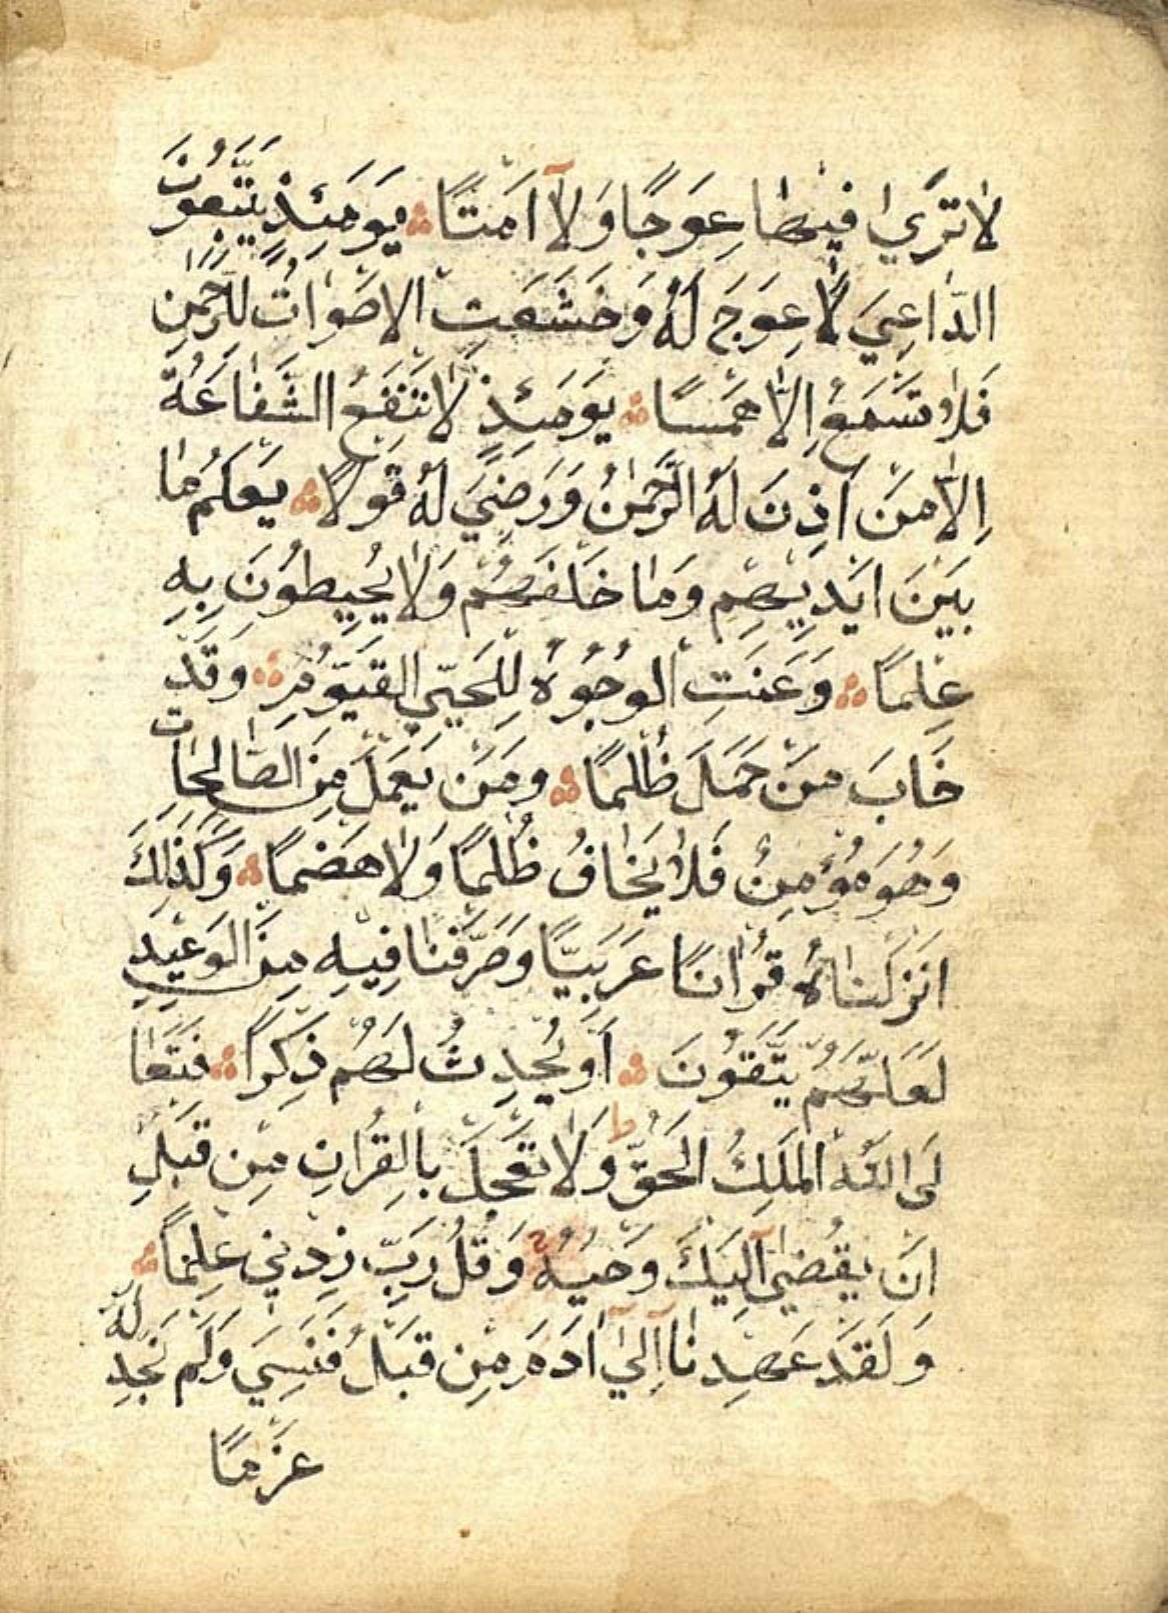 لَا تَرٰي فِيهَا عِوَجًا وَلَآ اَمْتًا ۞ يَوْمَئِذٍ يَتَّبِعُونَ
الدَّاعِيَ لَا عِوَجَ لَهُ وَخَشَعَتِ الْاَصْوَاتُ لِلرَّحْمٰنِ
فَلَا تَسْمَعُ اِلَّا هَمْسًا ۞ يَوْمَئِذٍ لَا تَنْفَعُ الشَّفَاعَةُ
اِلَّا مَنْ اَذِنَ لَهُ الرَّحْمٰنُ وَرَضِيَ لَهُ قَوْلًا ۞ يَعْلَمُ مَا
بَيْنَ اَيْدِيهِمْ وَمَا خَلْفَهُمْ وَلَا يُحِيطُونَ بِهِ
عِلْمًا ۞ وَعَنَتِ الْوُجُوهُ لِلْحَيِّ الْقَيُّومِ ۞ وَقَدْ
خَابَ مَنْ حَمَلَ ظُلْمًا ۞ وَمَنْ يَعْمَلْ مِنَ الصَّالِحَاتِ
وَهُوَ مُؤْمِنٌ فَلَا يَخَافُ ظُلْمًا وَلَا هَضْمًا ۞ وَكَذٰلِكَ
اَنْزَلْنَاهُ قُرْاٰنًا عَرَبِيًّا وَصَرَّفْنَا فِيهِ مِنَ الْوَعِيدِ
لَعَلَّهُمْ يَتَّقُونَ ۞ اَوْ يُحْدِثُ لَهُمْ ذِكْرًا ۞ فَتَعَا
لَى اللّٰهُ الْمَلِكُ الْحَقُّ ط وَلَا تَعْجَلْ بِالْقُرْاٰنِ مِنْ قَبْلِ
اَنْ يُقْضٰي اِلَيْكَ وَحْيُهُ وَقُلْ رَبِّ زِدْنِي عِلْمًا ۞
وَلَقَدْ عَهِدْنَا اِلٰي اٰدَمَ مِنْ قَبْلُ فَنَسِيَ وَلَمْ نَجِدْ لَهُ
عَزْمًا